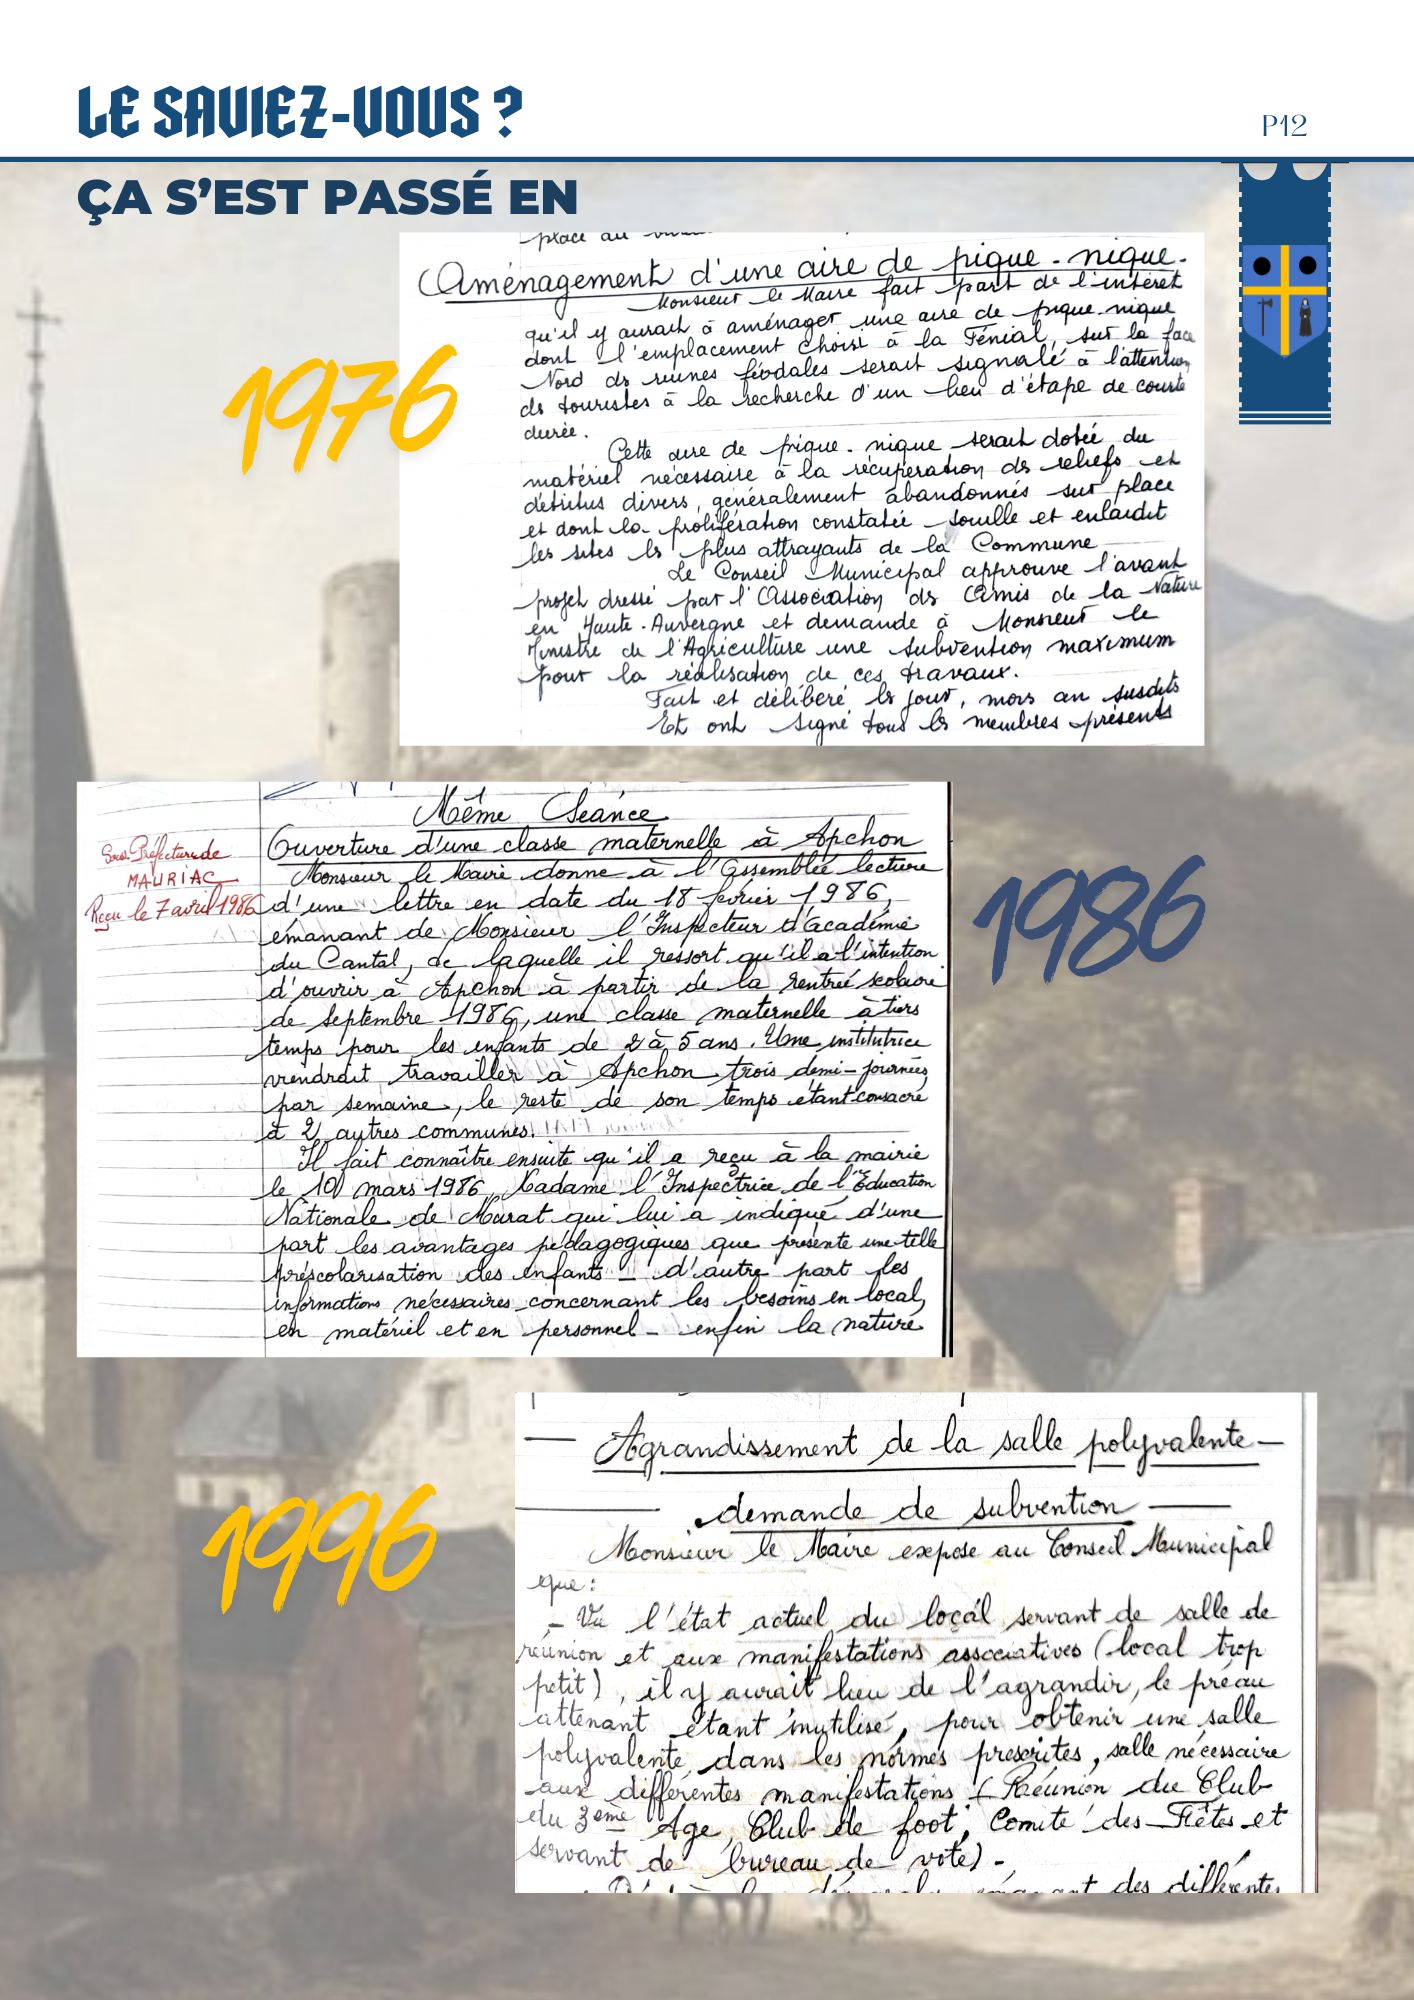 LE SAVIEZ-VOUS ?
P12
ÇA S'EST PASSÉ EN
1976
place au
Aménagement d'une aire de pique-nique.
Monsieur le Maire fait part de l'intérêt
qu'il y aurait à aménager une aire de pique-nique
dont l'emplacement choisi à la Fénial, sur la face
Nord ds ruines féodales serait signalé à l'attention
ds touristes à la recherche d'un lieu d'étape de courte
durée.
Cette aire de pique-nique serait dotée du
matériel nécessaire à la récupération ds reliefs et
détritus divers, généralement abandonnés sur place
et dont la prolifération constatée souille et enlaidit
les sites ls plus attrayants de la Commune
Le Conseil Municipal approuve l'avant
projet dressé par l'Association ds Amis de la Nature
en Haute-Auvergne et demande à Monsieur le
Ministre de l'Agriculture une subvention maximum
pour la réalisation de ces travaux.
Fait et délibéré ls jour, mois an susdits
Et ont signé tous ls membres présents
1986
Sous-Préfecture de
MAURIAC
Reçu le 7 avril 1986
Même Séance
Ouverture d'une classe maternelle à Apchon
Monsieur le Maire donne à l'Assemblée lecture
d'une lettre en date du 18 février 1986,
émanant de Monsieur l'Inspecteur d'académie
du Cantal, de laquelle il ressort qu'il a l'intention
d'ouvrir à Apchon à partir de la rentrée scolaire
de septembre 1986, une classe maternelle à tiers
temps pour les enfants de 2 à 5 ans. Une institutrice
viendrait travailler à Apchon trois demi-journées
par semaine, le reste de son temps étant consacré
à 2 autres communes.
Il fait connaître ensuite qu'il a reçu à la mairie
le 10 mars 1986, Madame l'Inspectrice de l'Education
Nationale de Murat qui lui a indiqué d'une
part les avantages pédagogiques que présente une telle
préscolarisation des enfants - d'autre part les
informations nécessaires concernant les besoins en local,
en matériel et en personnel - enfin la nature
1996
- Agrandissement de la salle polyvalente -
demande de subvention
Monsieur le Maire expose au Conseil Municipal
que:
- Vu l'état actuel du local servant de salle de
réunion et aux manifestations associatives (local trop
petit), il y aurait lieu de l'agrandir, le préau
attenant étant inutilisé, pour obtenir une salle
polyvalente, dans les normes prescrites, salle nécessaire
aux différentes manifestations (Réunion du Club
du 3ème Age, Club de foot, Comité des Fêtes et
servant de bureau de vote) -
des différentes